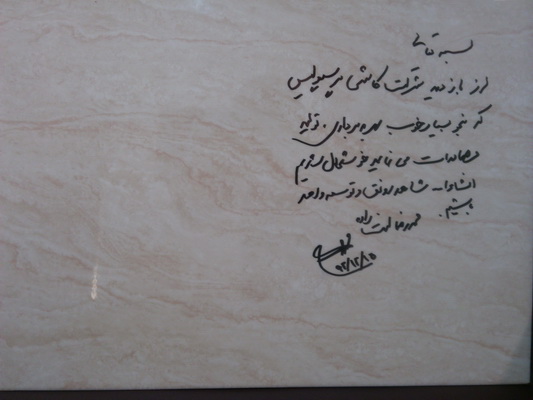 بسمه تعالی
از بازدید شرکت کاشی پرسپولیس
که بنحو بسیار خوب بهره‌برداری، تولید
و صادرات می نماید خوشحال شدیم
انشاءا... شاهد رونق و توسعه واحد
باشیم.
محمدرضا نعمت زاده
۹۲/۱۲/۱۵